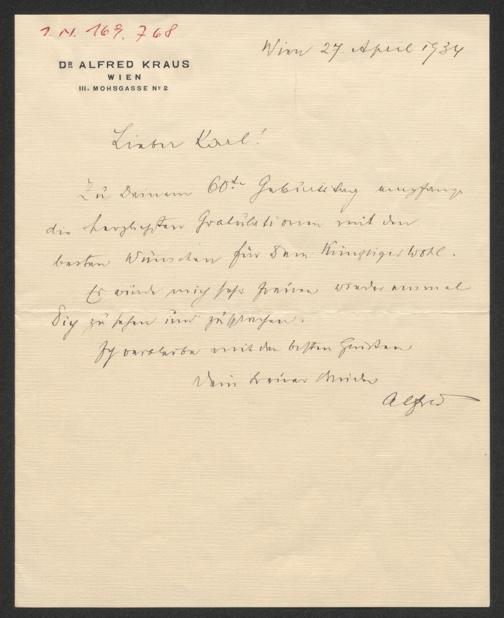 I.N. 169.768
Wien 27 April 1934
DR ALFRED KRAUS
WIEN
III., MOHSGASSE No 2
Lieber Karl!
Zu Deinem 60ten Geburtstag empfange
die herzlichsten Gratulationen mit den
besten Wünschen für Dein künftiges Wohl.
Es würde mich sehr freuen wieder einmal
Dich zu sehen und zu sprechen.
Ich verbleibe mit den besten Grüssen
Dein treuer Bruder
Alfred